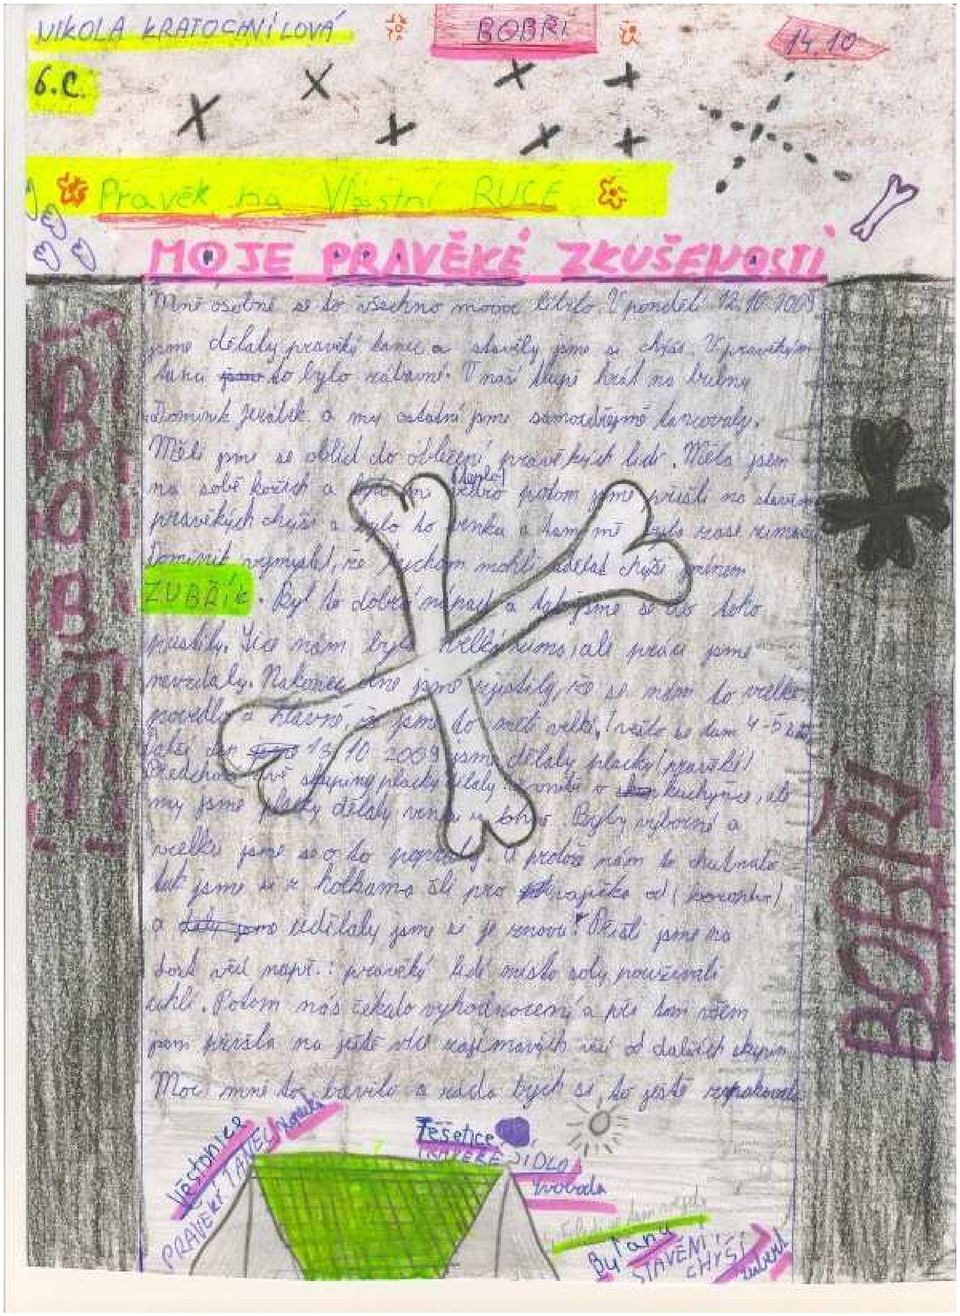 NIKOLA KRATOCHVÍLOVÁ
BOBŘI
14.10
6.C.
Pravěk na Vlastní RUCE
MOJE PRAVĚKÉ ZKUŠENOSTI
Mně osobně se to všechno moooc líbilo. V pondělí 12.10.2009
jsme dělaly pravěký tanec a stavěly jsme si chýše. V pravěkým
tanci jsme to bylo zábavné. V naší skupě hrál na bubny
Dominik Jeřábek a my ostatní jsme samozdřejmě tancovaly.
Měli jsme se oblíct do oblečení pravěkých lidí. Měla jsem
na sobě kožich a vedro (teplo) potom jsme přišli na stavění
pravěkých chýší a bylo to venku a tam mě bylo zase zima.
Dominik vymyslel, že bychom mohli udělat chýši jménem
ZUBŘÍK. Byl to dobrý nápad a tak jsme se do toho
pustily. Sice nám byla velká zima, ale práci jsme
nevzdaly. Nakonec dne jsme zjistily, že se nám to velké
povedlo a hlavně, že jsme to měli velký, (vešlo se tam 4-5 lidí)
Další den 13.10 2009 jsme dělaly placky (pravěké)
Předchozí dvě skupiny placky dělaly v kuchyňce, ale
my jsme placky dělaly venku u ohně. Byly výborné a
velké jsme se o to popraly. A protože nám to chutnalo
tak jsme si z holkama šli pro vajíčka od
a daly jsme udělaly jsme si je znova! Přišli jsme na
dost věcí např.: pravěký lidi místo soly používali
uhlí. Potom nás čekalo vyhodnocení a při tom všem
jsem přišla na ještě více zajímavých věcí od dalších skupin.
Moc mně to bavilo a ráda bych si to ještě zopakovala
BOBŘI
BOBŘI
Věstonice
PRAVĚKÝ TANEC
Těšetice
PRAVĚKÉ SÍDLO
Svoboda
Bylany
STAVĚNÍ CHÝŠÍ